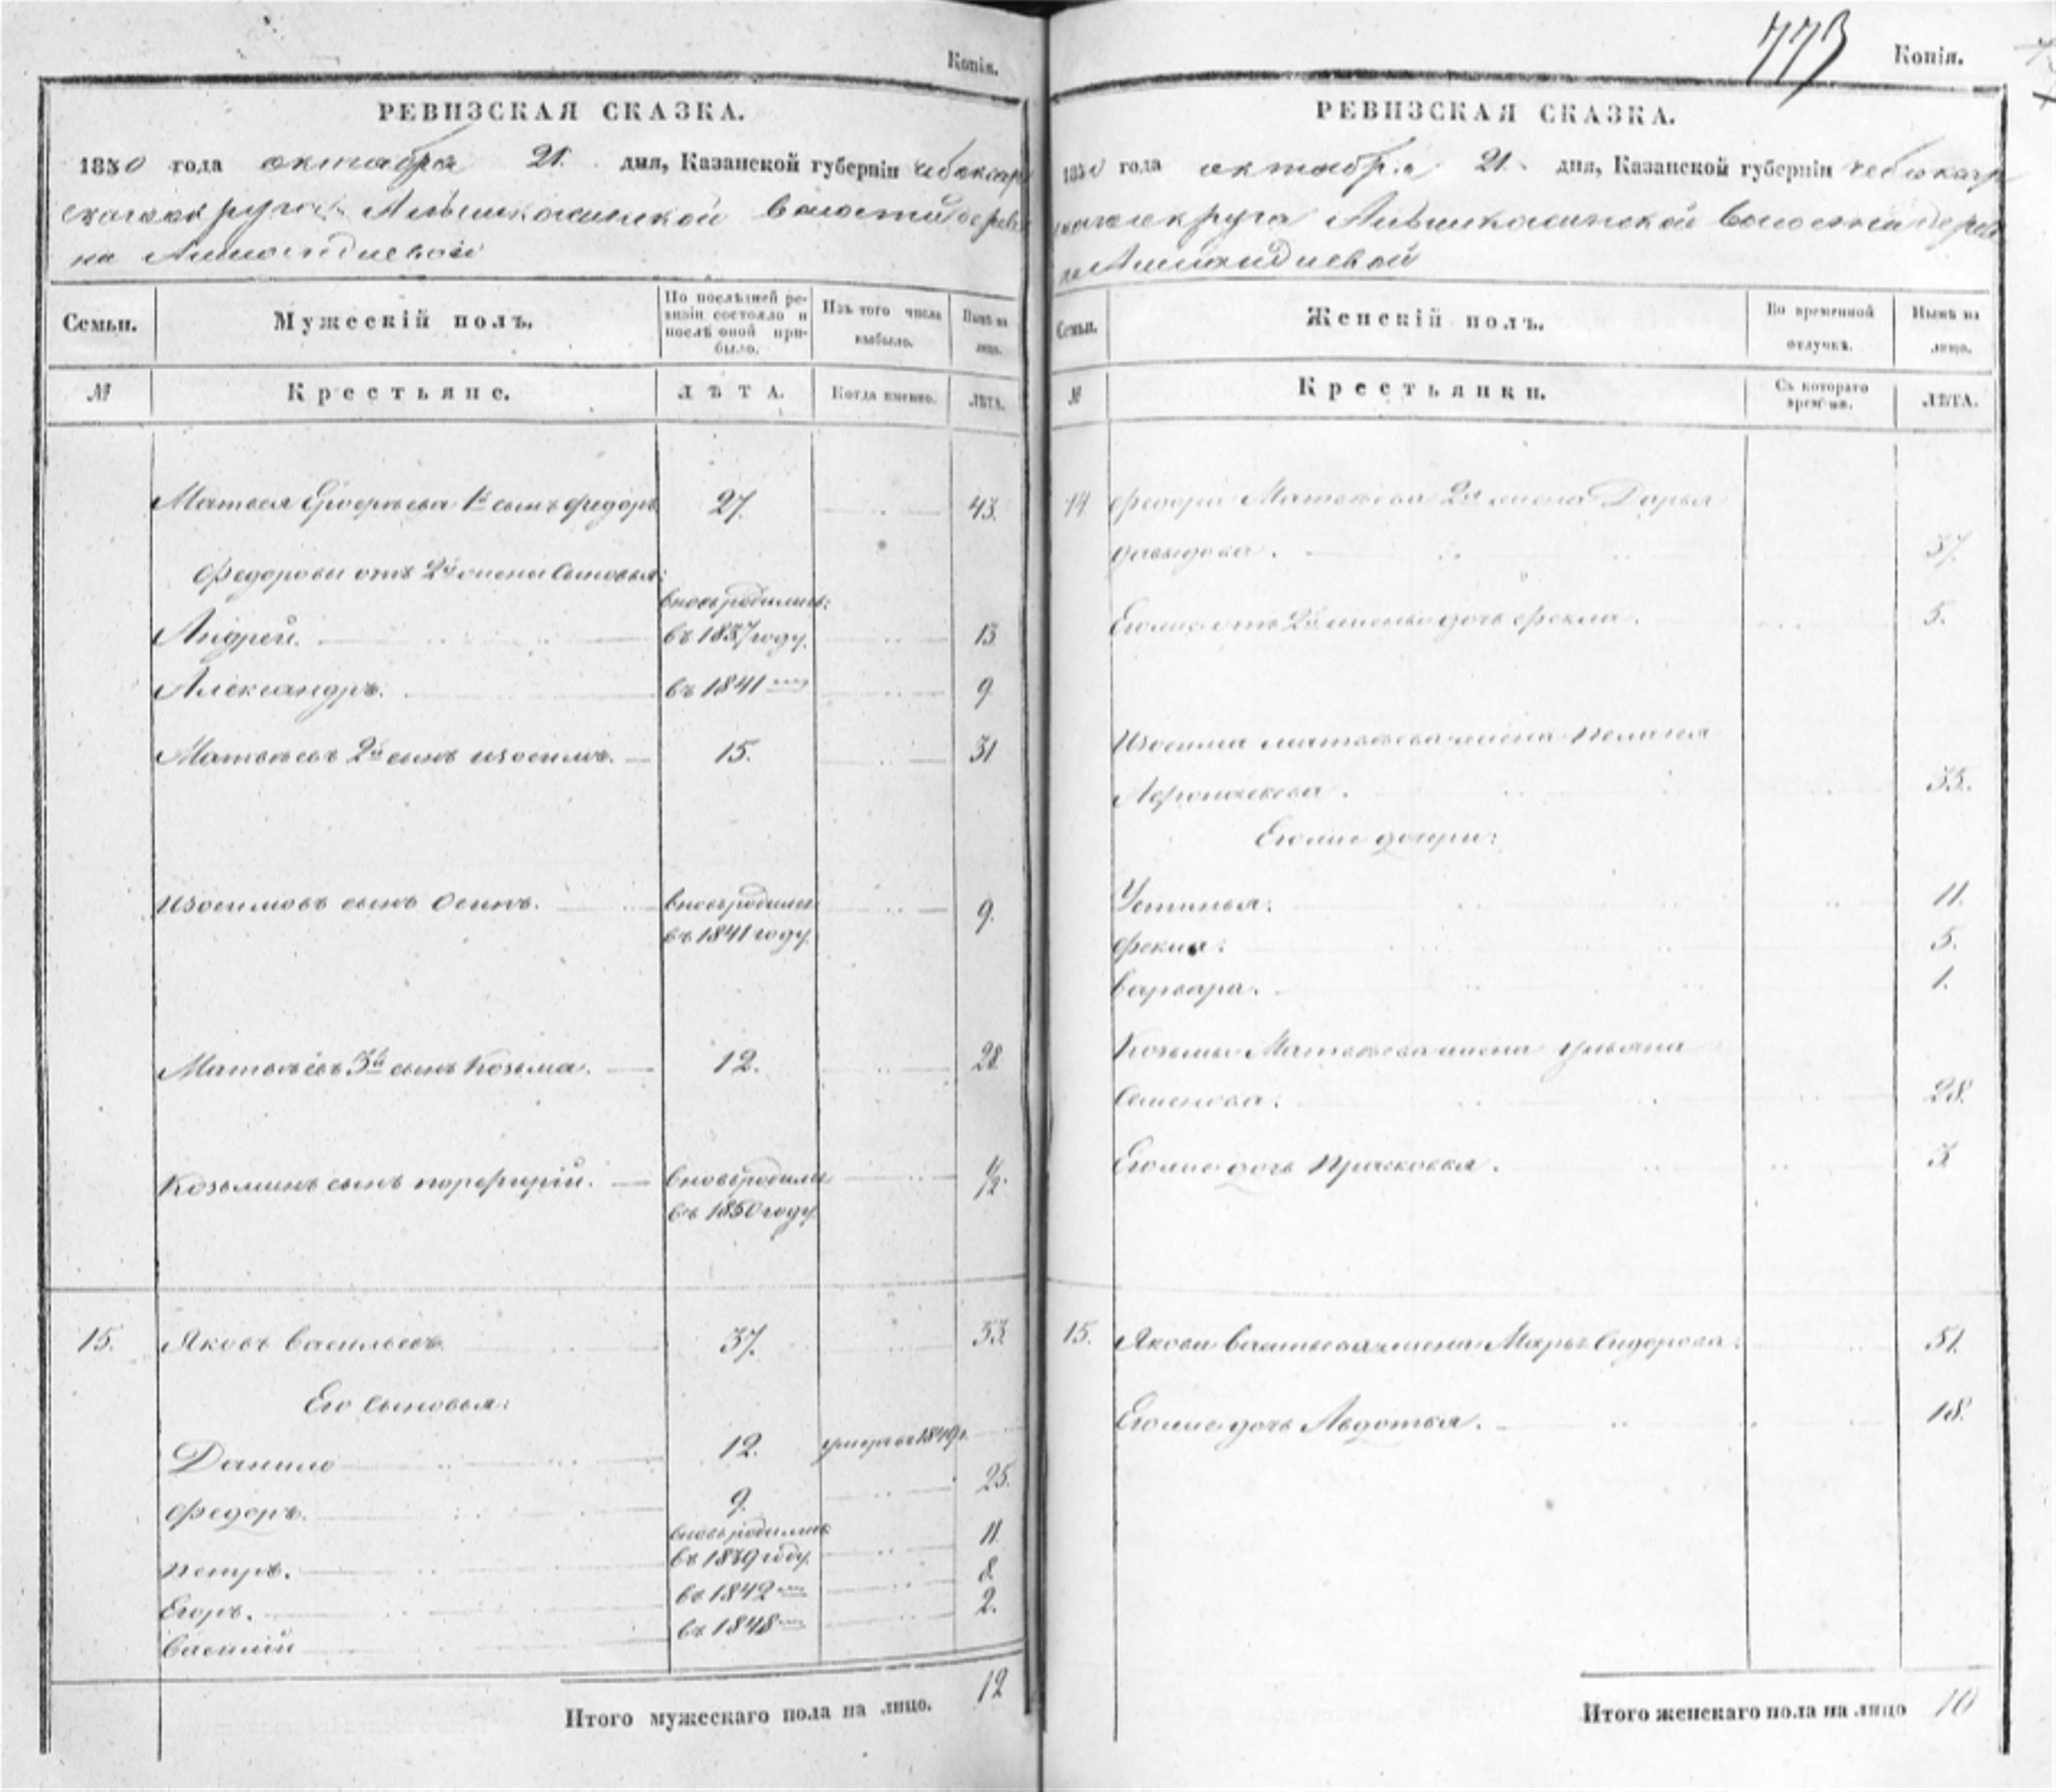 Копія.
РЕВИЗСКАЯ СКАЗКА.
1850 года октября 21. дня, Казанской губерніи Чебоксар
скаго округа Алымкасинской волости дерев
ни
Семьи.
Мужескій полъ.
По послѣдней ре-
визіи состояло и
послѣ оной при-
было.
Изъ того числа
выбыло.
Нынѣ на
лицо.
№
Крестьяне.
ЛѢТА.
Когда именно.
ЛѢТА.
Матвея 1й сынъ Федоръ 27. 43.
Федоровы отъ 2й жены сыновья:
вновь родились:
Андрей. въ 1837 году. 13
Александръ. въ 1841 9
Матвѣевъ 2й сынъ Изосимъ. 15. 31
Изосимовъ сынъ Осипъ. вновь родился 9.
въ 1841 году.
Матвѣевъ 3й сынъ Козьма. 12. 28.
Козьминъ сынъ Порфирій. вновь родился 1/2
въ 1850 году.
15. Яковъ Васильевъ 37. 53.
Его сыновья:
Данило 12. 1849 г.
Федоръ. 9. 25.
вновь родились
Петръ. въ 1839 году. 11.
Егоръ. въ 1842 8.
Василій въ 1848 2.
Итого мужескаго пола на лицо. 12
773
Копія.
РЕВИЗСКАЯ СКАЗКА.
1850 года октября 21. дня, Казанской губерніи Чебоксар
скаго округа Алымкасинской волости дерев
ни
Семьи.
Женскій полъ.
Во временной
отлучкѣ.
Нынѣ на
лицо.
№
Крестьянки.
Съ котораго
времени.
ЛѢТА.
14 Федора Матвѣева 2я жена Дарья
Давыдова. 37.
Его же отъ 2й жены дочь Фекла. 5.
Изосима Матвѣева жена Пелагея
35.
Его же дочери:
Устинья. 11.
Фекла. 5.
Варвара. 1.
Козьмы Матвѣева жена Ульяна
Семенова. 28.
Его же дочь Прасковья. 3.
15. Якова Васильева жена Марья Сидорова. 51.
Его же дочь Авдотья. 18.
Итого женскаго пола на лицо 10